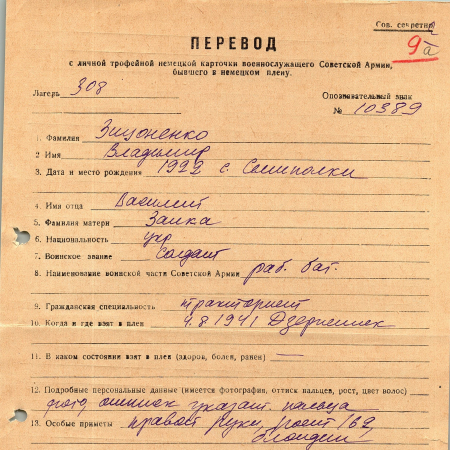 Сов. секретно
9а
ПЕРЕВОД
с личной трофейной немецкой карточки военнослужащего Советской Армии,
бывшего в немецком плену.
Лагерь 308
Опознавательный знак
№ 10389
1. Фамилия
2 Имя Владимир
3. Дата и место рождения 1922 с.
4. Имя отца Василий
5. Фамилия матери Заика
6. Национальность укр
7. Воинское звание Солдат
8. Наименование воинской части Советской Армии раб. бат.
9. Гражданская специальность тракторист
10. Когда и где взят в плен 4.8.1941
11. В каком состоянии взят в плен (здоров, болен, ранен) —
12. Подробные персональные данные (имеется фотография, оттиск пальцев, рост, цвет волос)
фото, оттиск указат. пальца
13. Особые приметы правой руки, рост 162
блондин